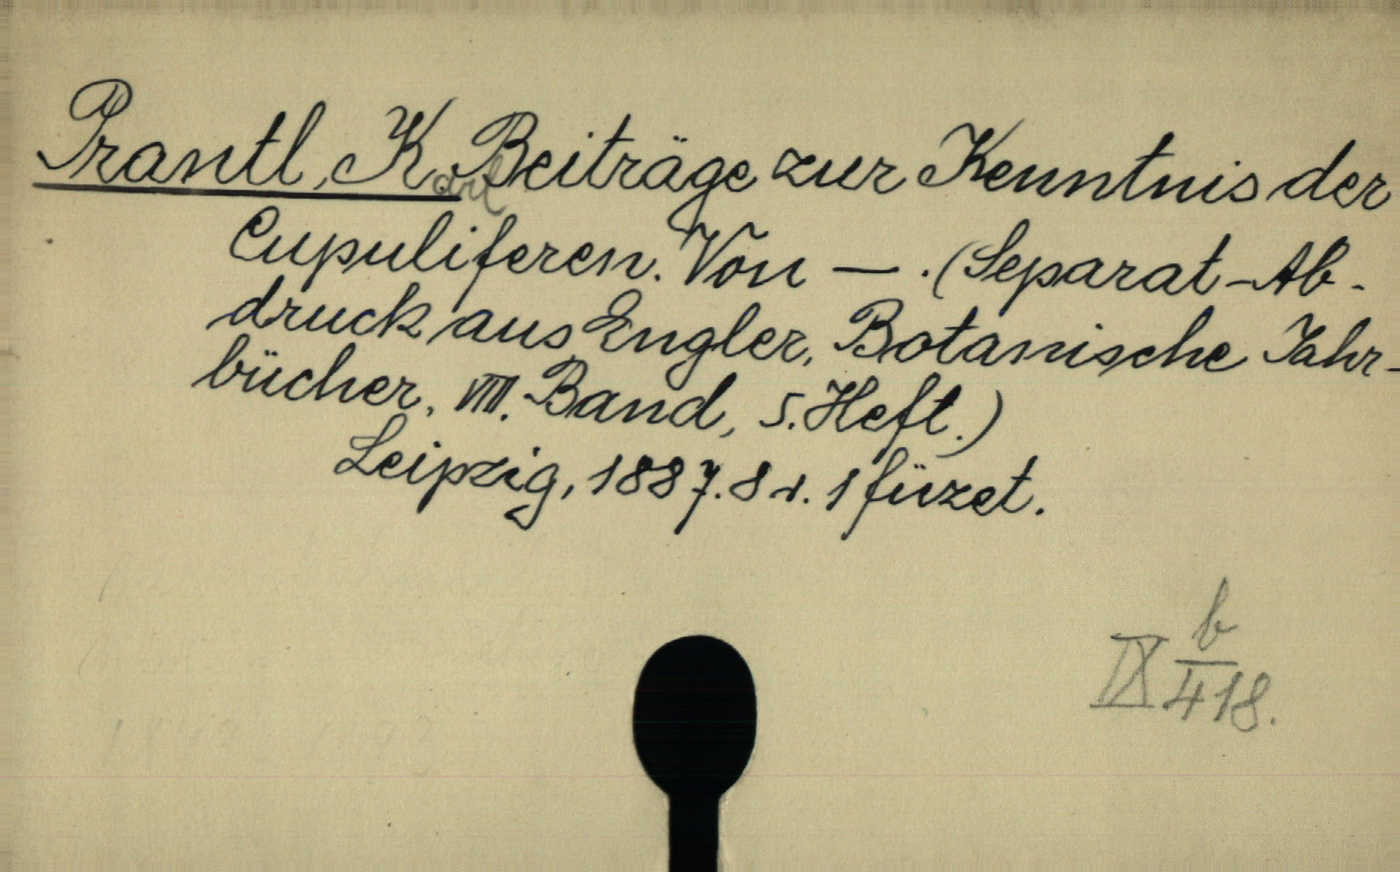 Prantl, Karl Beiträge zur Kenntnis der
Cupuliferen. Von — . (Separat-Ab-
druck aus Engler, Botanische Jahr-
bücher. VIII. Band, 5. Heft.)
Leipzig, 1887. 8 r. 1 füzet.
IX b
418.